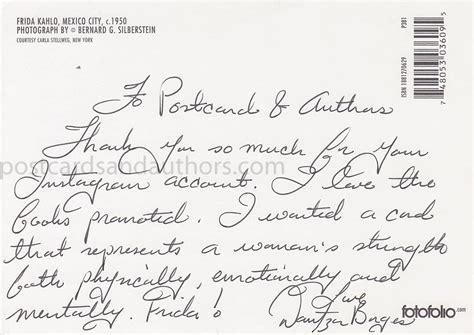 FRIDA KAHLO, MEXICO CITY, c.1950
PHOTOGRAPH BY © BERNARD G. SILBERSTEIN
COURTESY CARLA STELLWEG, NEW YORK
P381
ISBN 1881270629
7 48053 03609 5
To Postcard & Authors
Thank you so much for your
postcardsandauthors.com
Instagram account. I love the
books promoted. I wanted a card
that represents a woman's strength
both physically, emotionally and
mentally. Frida!
Love
fotofolio.com